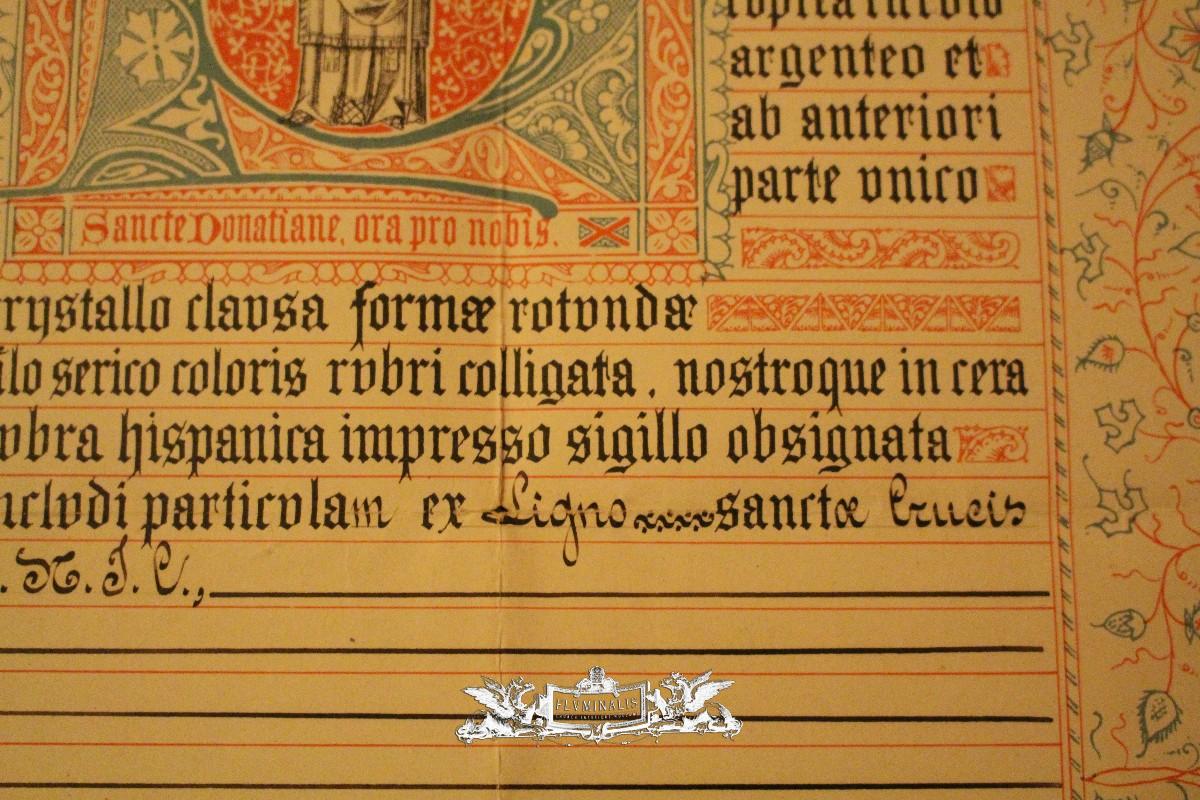 argenteo et
ab anteriori
parte vnico
Sancte Donatiane, ora pro nobis.
crystallo clavsa formæ rotvndæ
filo serico coloris rvbri colligata, nostroque in cera
rvbra hispanica impresso sigillo obsignata
inclvdi particvlam ex Ligno sanctæ Crucis
N. J. C.,
FLVMINALIS